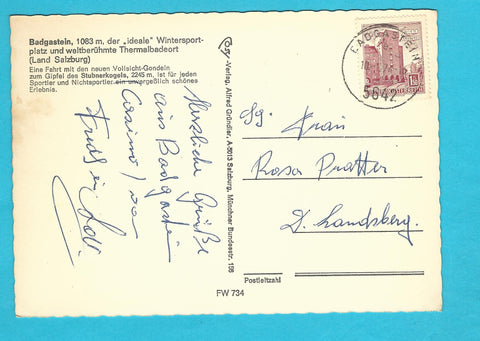 Badgastein, 1083 m, der „ideale" Wintersport-
platz und weltberühmte Thermalbadeort
(Land Salzburg)
Eine Fahrt mit den neuen Vollsicht-Gondeln
zum Gipfel des Stubnerkogels, 2245 m, ist für jeden
Sportler und Nichtsportler ein unvergeßlich schönes
Erlebnis.
Herzliche Grüße
aus Badgastein
Casino
-Verlag, Alfred Gründler, A-5013 Salzburg, Münchner Bundesstr. 156
BADGASTEIN
5642
Sg. Frau
Rosa Pratter
D. Landsberg.
Postleitzahl
FW 734